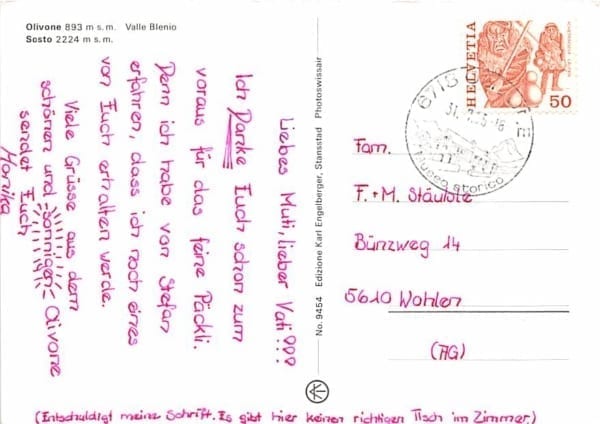 Olivone 893 m s.m. Valle Blenio
Sosto 2224 m s.m.
Liebes Muti, lieber Vati!!!
Ich Danke Euch schon zum
voraus für das feine Päckli.
Denn ich habe von Stefan
erfahren, dass ich noch eines
von Euch erhalten werde.
Viele Grüsse aus dem
schönen und sonnigen Olivone
sendet Euch
Monika
(Entschuldigt meine Schrift. Es gibt hier keinen richtigen Tisch im Zimmer.)
No. 9454 Edizione Karl Engelberger, Stansstad Photoswissair
HELVETIA
50
6715
Museo storico
Fam.
F.+M. Stäuble
Bünzweg 14
5610 Wohlen
(AG)